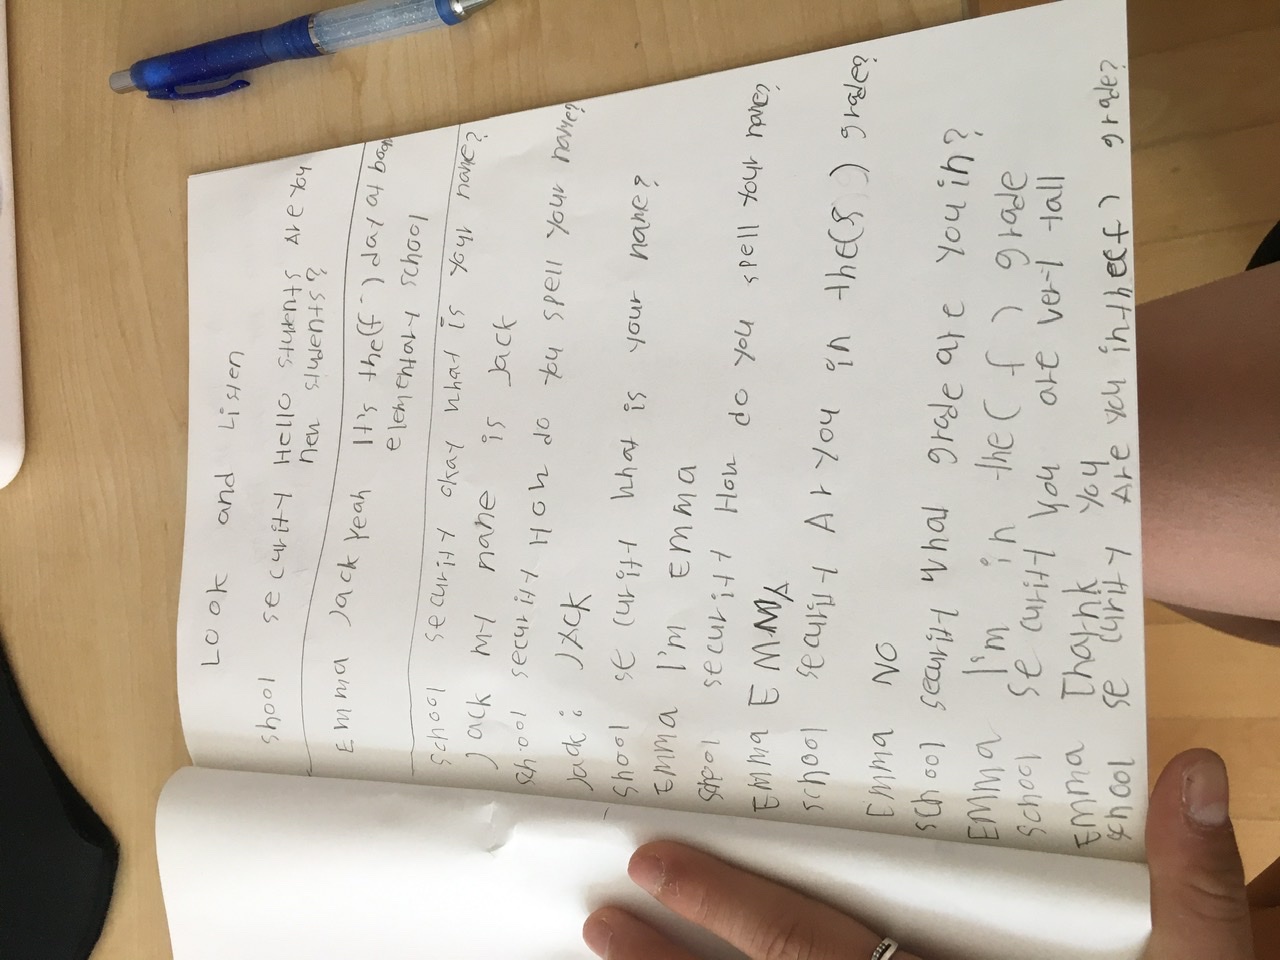 Look and Listen
shool security Hello students Are you
new students?
Emma Jack Yeah It's the(f-) day at boon
elementary school
school security okay what is your name?
Jack my name is Jack
school security How do you spell your name?
Jack: JACK
Shool security what is your name?
Emma I'm Emma
school security How do you spell your name?
Emma EMMA
school security Ar you in the( ) grade?
Emma NO
school security what grade are you in?
Emma I'm in the( f ) grade
school security you are very tall
Emma you
shool security Are you in the(f) grade?